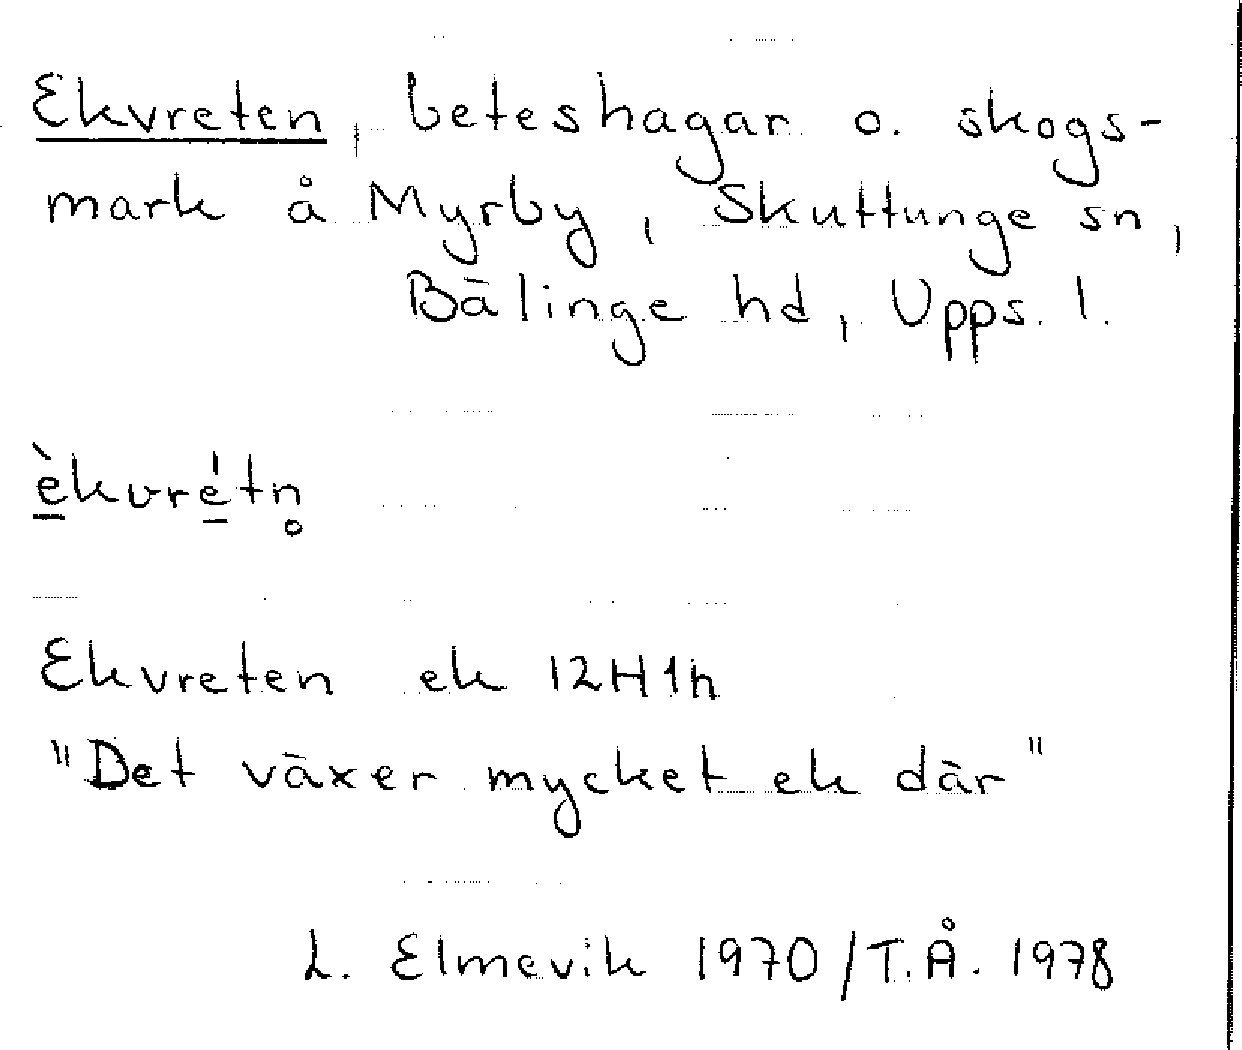 Ekvreten, beteshagar o. skogs-
mark å Myrby, Skuttunge sn,
Bälinge hd, Upps. l.
è̠kvré̠tn̥
Ekvreten ek 12H1h
"Det växer mycket ek där"
L. Elmevik 1970/T.Å. 1978